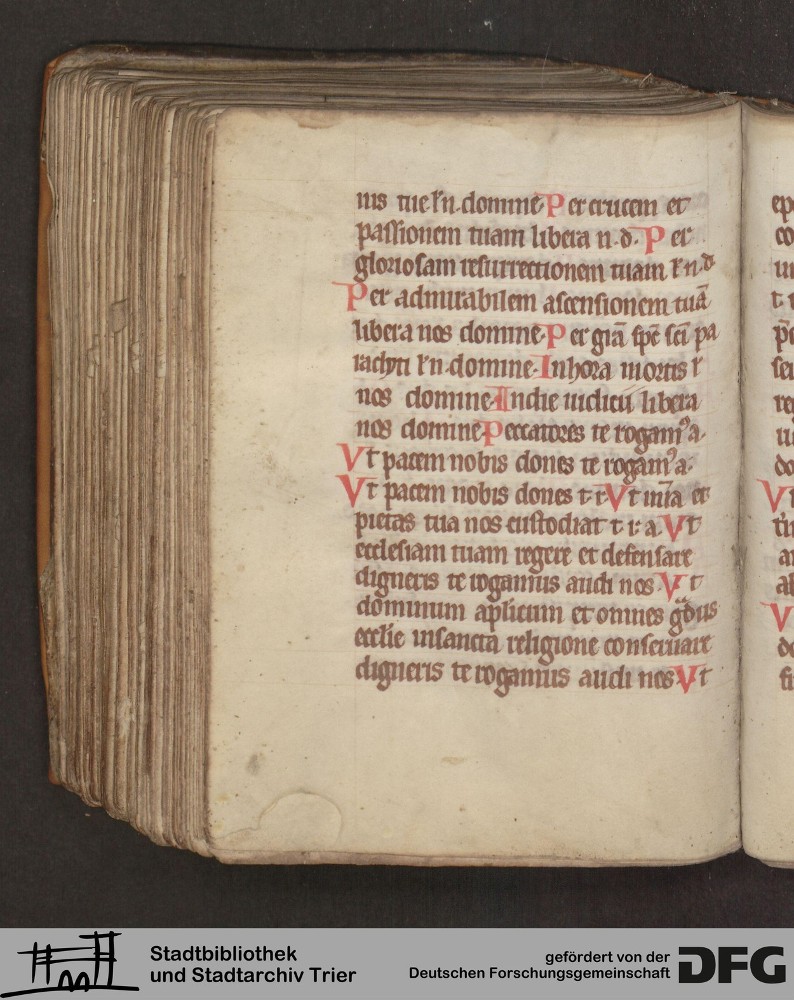 nis tue l n. domine Per crucem et
passionem tuam libera n. d. Per
gloriosam resurrectionem tuam l n d
Per admirabilem ascensionem tuā
libera nos domine. Per grā spē sci pa
raclyti l n. domine. In hora mortis l
nos domine. In die iudicii libera
nos domine Peccatores te rogamꝰ a.
Vt pacem nobis dones te rogamꝰ a.
Vt pacem nobis dones t r Vt mīa et
pietas tua nos custodiat t r. a. Vt
ecclesiam tuam regere et defensare
digneris te rogamus audi nos Vt
dominum aplicum et omnes gdus
ecclie in sancta religione conseruare
digneris te rogamus audi nos Vt
ep
co
t
Vt
V
Stadtbibliothek
und Stadtarchiv Trier
gefördert von der
Deutschen Forschungsgemeinschaft
DFG